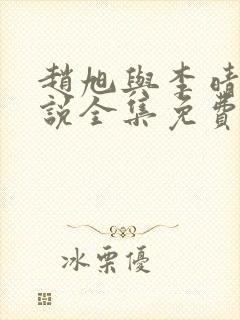 趙旭與李晴
說全集免費
冰栗優